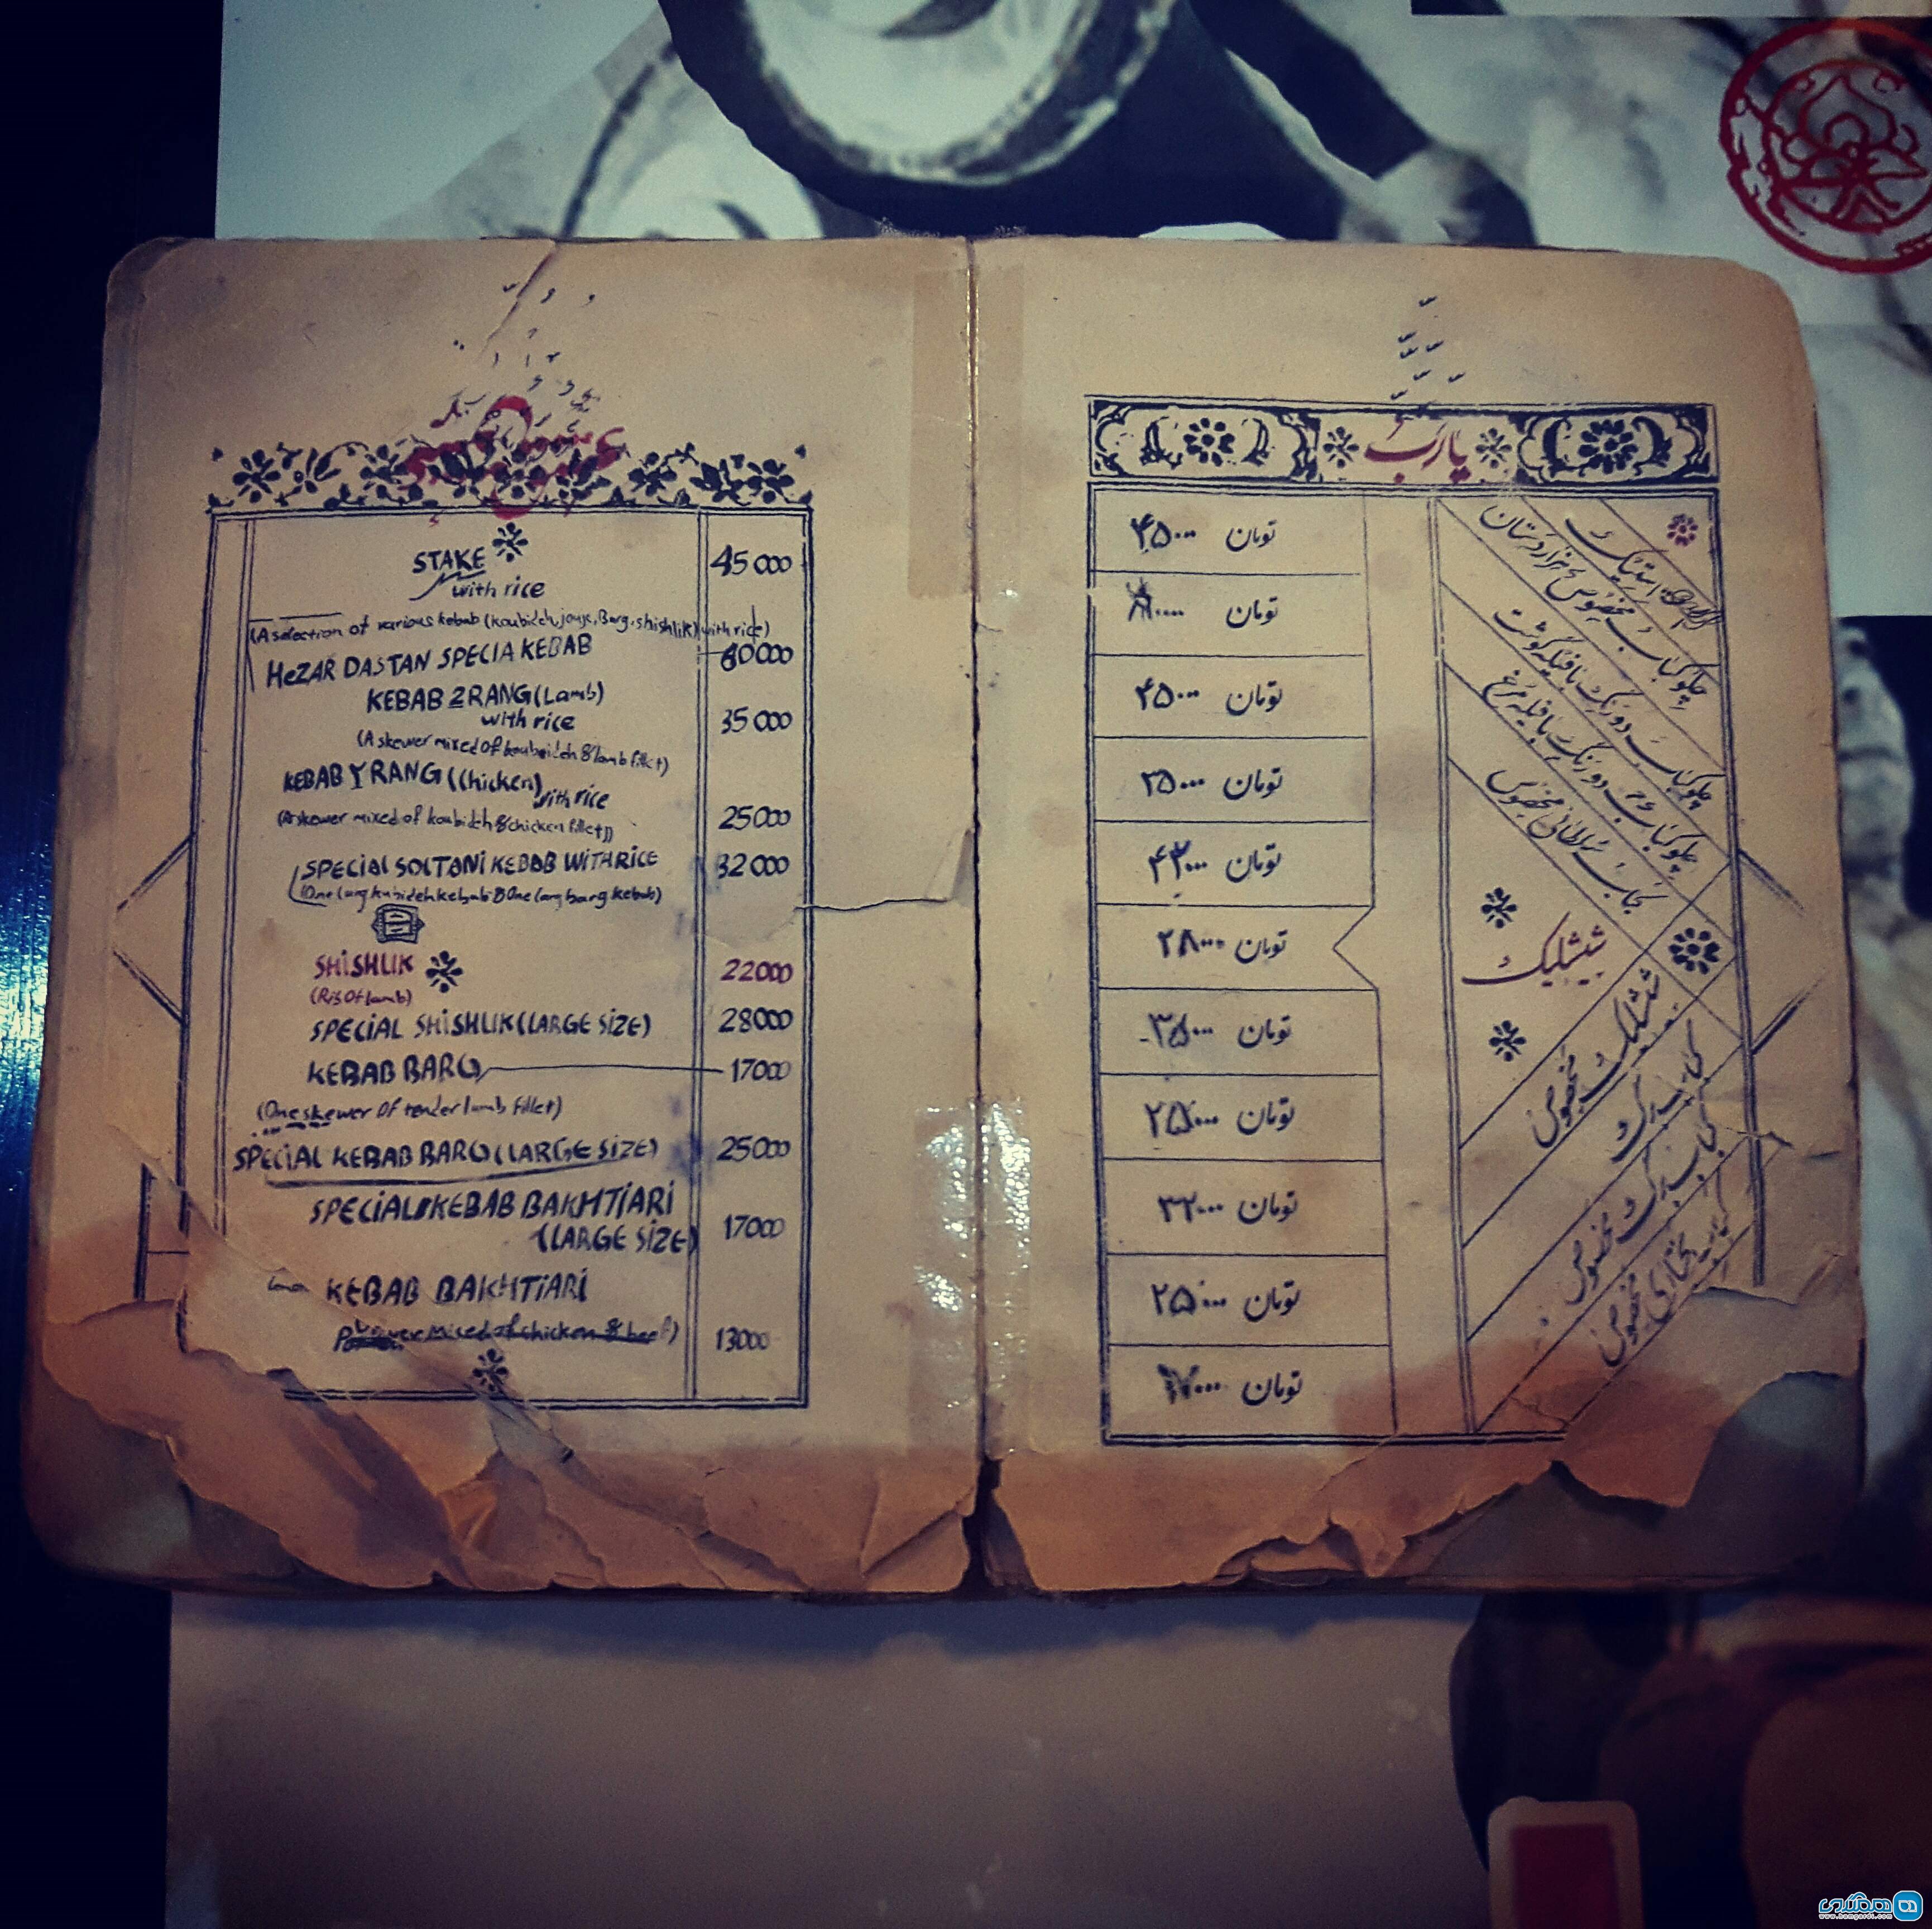 STAKE
with rice
45000
(A selection of various kebab (koubideh, jouje, Barg, shishlik) with rice)
HEZAR DASTAN SPECIA KEBAB
60000
KEBAB 2 RANG (Lamb)
with rice
35000
(A skewer mixed of koubideh & lamb fillet)
KEBAB ۲ RANG (Chicken)
with rice
(A skewer mixed of koubideh & chicken fillet)
25000
SPECIAL SOLTANI KEBAB WITH RICE
32000
(One larg kubideh kebab & One larg barg kebab)
SHISHLIK
22000
(Rib Of lamb)
SPECIAL SHISHLIK (LARGE SIZE)
28000
KEBAB BARG
17000
(One skewer Of tender lamb fillet)
SPECIAL KEBAB BARG (LARGE SIZE)
25000
SPECIAL KEBAB BAKHTIARI
(LARGE SIZE)
17000
KEBAB BAKHTIARI
mixed of chicken & beef)
13000
یا رب
استیک
۴۵۰۰۰ تومان
چلو کباب مخصوص هزاردستان
تومان
چلو کباب دو رنگ با فیله گوشت
۴۵۰۰۰ تومان
چلو کباب دو رنگ با فیله مرغ
۳۵۰۰۰ تومان
کباب سلطانی مخصوص
۴۲۰۰۰ تومان
شیشلیک
۲۸۰۰۰ تومان
شیشلیک مخصوص
۳۵۰۰۰ تومان
کباب برگ
۲۵۰۰۰ تومان
کباب برگ مخصوص
۳۲۰۰۰ تومان
کباب بختیاری مخصوص
۲۵۰۰۰ تومان
۱۷۰۰۰ تومان
همگردی
www.hamgardi.com